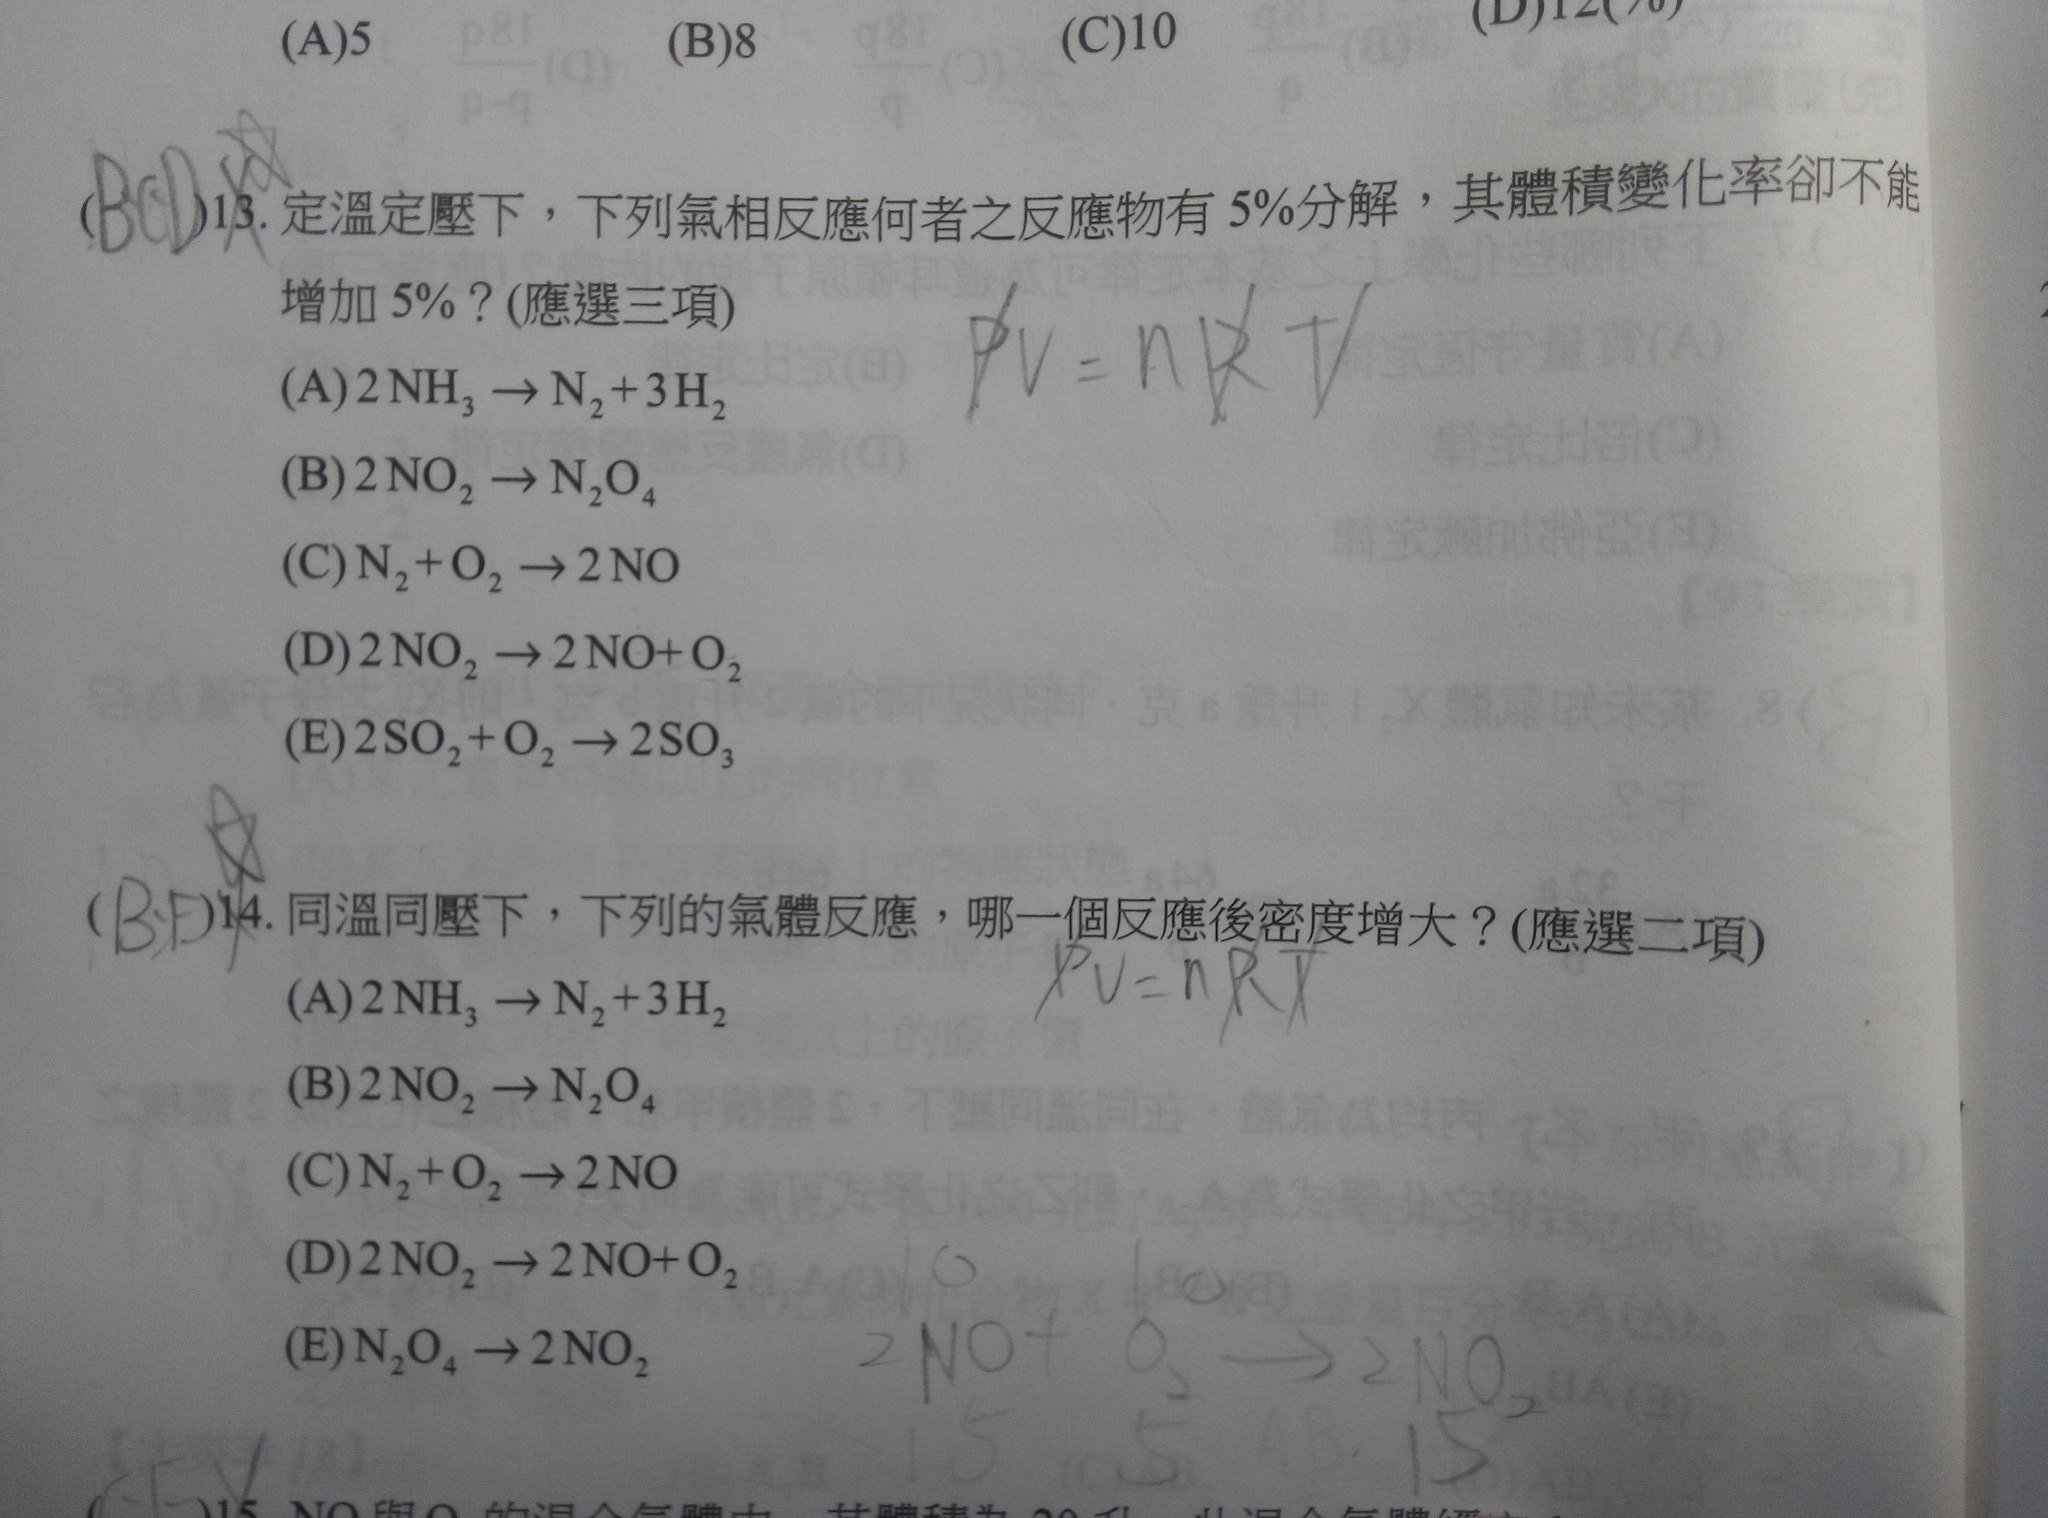 (A)5 (B)8 (C)10 (D)12(%)
(BCD)13. 定溫定壓下，下列氣相反應何者之反應物有 5%分解，其體積變化率卻不能
增加 5%？(應選三項)
PV=nRT
(A)2NH₃→N₂+3H₂
(B)2NO₂→N₂O₄
(C)N₂+O₂→2NO
(D)2NO₂→2NO+O₂
(E)2SO₂+O₂→2SO₃
(B.E)14. 同溫同壓下，下列的氣體反應，哪一個反應後密度增大？(應選二項)
PV=nRT
(A)2NH₃→N₂+3H₂
(B)2NO₂→N₂O₄
(C)N₂+O₂→2NO
(D)2NO₂→2NO+O₂
10 10
(E)N₂O₄→2NO₂ 2NO+ O₂→2NO₂
15 5 15